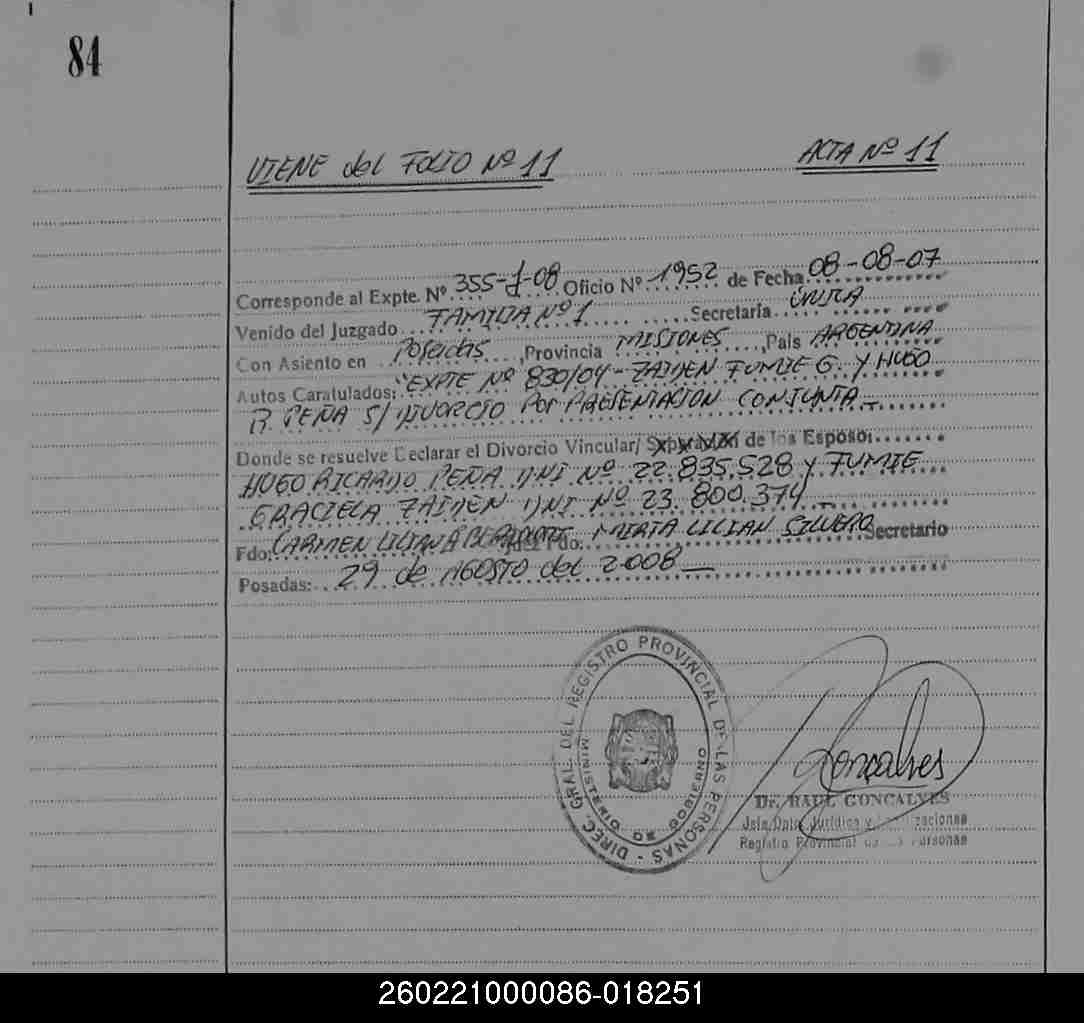 84
VIENE del FOLIO Nº 11
ACTA Nº 11
Corresponde al Expte. Nº 355-J-08 Oficio Nº 1952 de Fecha 08-08-07
Venido del Juzgado FAMILIA Nº 1 Secretaría ÚNICA
Con Asiento en Posadas, Provincia MISIONES, País ARGENTINA
Autos Caratulados: "EXPTE Nº 830/04 - ZAIJEN FUMIE G. Y HUGO
R. PEÑA S/ DIVORCIO POR PRESENTACION CONJUNTA
Donde se resuelve Declarar el Divorcio Vincular/ de los Esposo:
HUGO RICARDO PEÑA DNI Nº 22.835.528 y FUMIE
GRACIELA ZAIJEN DNI Nº 23.800.374
Fdo: CARMEN LILIANA Juez Fdo: MIRTA LILIAN SILVERO Secretario
Posadas: 29 de AGOSTO del 2008
DIREC. GRAL. DEL REGISTRO PROVINCIAL DE LAS PERSONAS -
MINISTERIO DE GOBIERNO
Goncalves
Dr. RAUL GONCALVES
Jefe Dpto. Jurídico y
Registro Provincial de las Personas
260221000086-018251